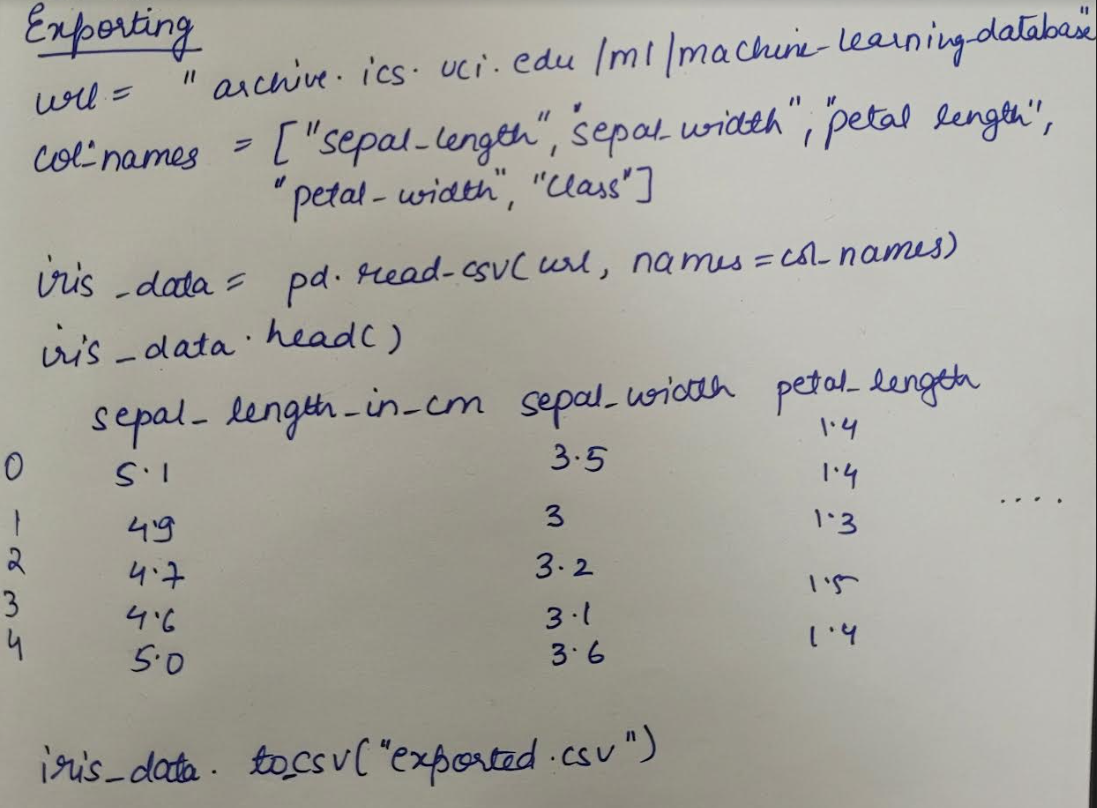 Exporting
url = "archive.ics.uci.edu/ml/machine-learning-database"
col_names = ["sepal_length", "sepal_width", "petal length",
"petal-width", "Class"]
iris_data = pd.read_csv(url, names=col_names)
iris_data.head()
sepal_length_in_cm sepal_width petal_length
0 5.1 3.5 1.4
1 4.9 3 1.4 ....
2 4.7 3.2 1.3
3 4.6 3.1 1.5
4 5.0 3.6 1.4
iris_data.to_csv("exported.csv")